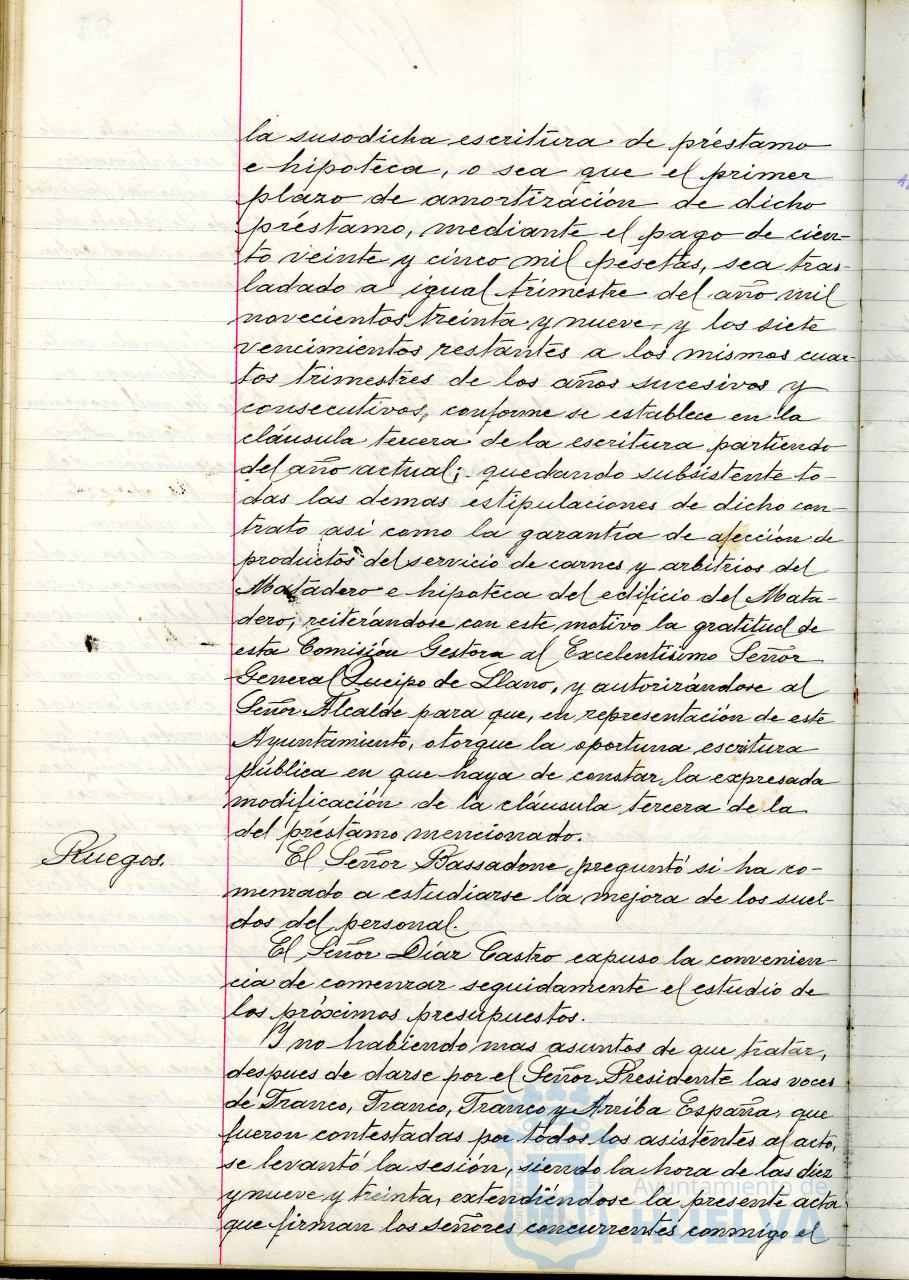 la susodicha escritura de préstamo
e hipoteca, o sea que el primer
plazo de amortización de dicho
préstamo, mediante el pago de cien-
to veinte y cinco mil pesetas, sea tras-
ladado a igual trimestre del año mil
novecientos treinta y nueve, y los siete
vencimientos restantes a los mismos cuar-
tos trimestres de los años sucesivos y
consecutivos, conforme se establece en la
cláusula tercera de la escritura partiendo
del año actual; quedando subsistente to-
das las demas estipulaciones de dicho con-
trato así como la garantía de afección de
productos del servicio de carnes y arbitrios del
Matadero e hipoteca del edificio del Mata-
dero, reiterándose con este motivo la gratitud de
esta Comisión Gestora al Excelentísimo Señor
General Queipo de Llano, y autorizándose al
Señor Alcalde para que, en representación de este
Ayuntamiento, otorgue la oportuna escritura
pública en que haya de constar la expresada
modificación de la cláusula tercera de la
del préstamo mencionado.
Ruegos.
El Señor Bassadone preguntó si ha co-
menzado a estudiarse la mejora de los suel-
dos del personal.
El Señor Díaz Castro expuso la convenien-
cia de comenzar seguidamente el estudio de
los próximos presupuestos.
Y no habiendo mas asuntos de que tratar,
despues de darse por el Señor Presidente las voces
de Franco, Franco, Franco y Arriba España, que
fueron contestadas por todos los asistentes al acto,
se levantó la sesión, siendo la hora de las diez
y nueve y treinta, extendiéndose la presente acta
que firman los señores concurrentes conmigo el
Ayuntamiento de
HUELVA